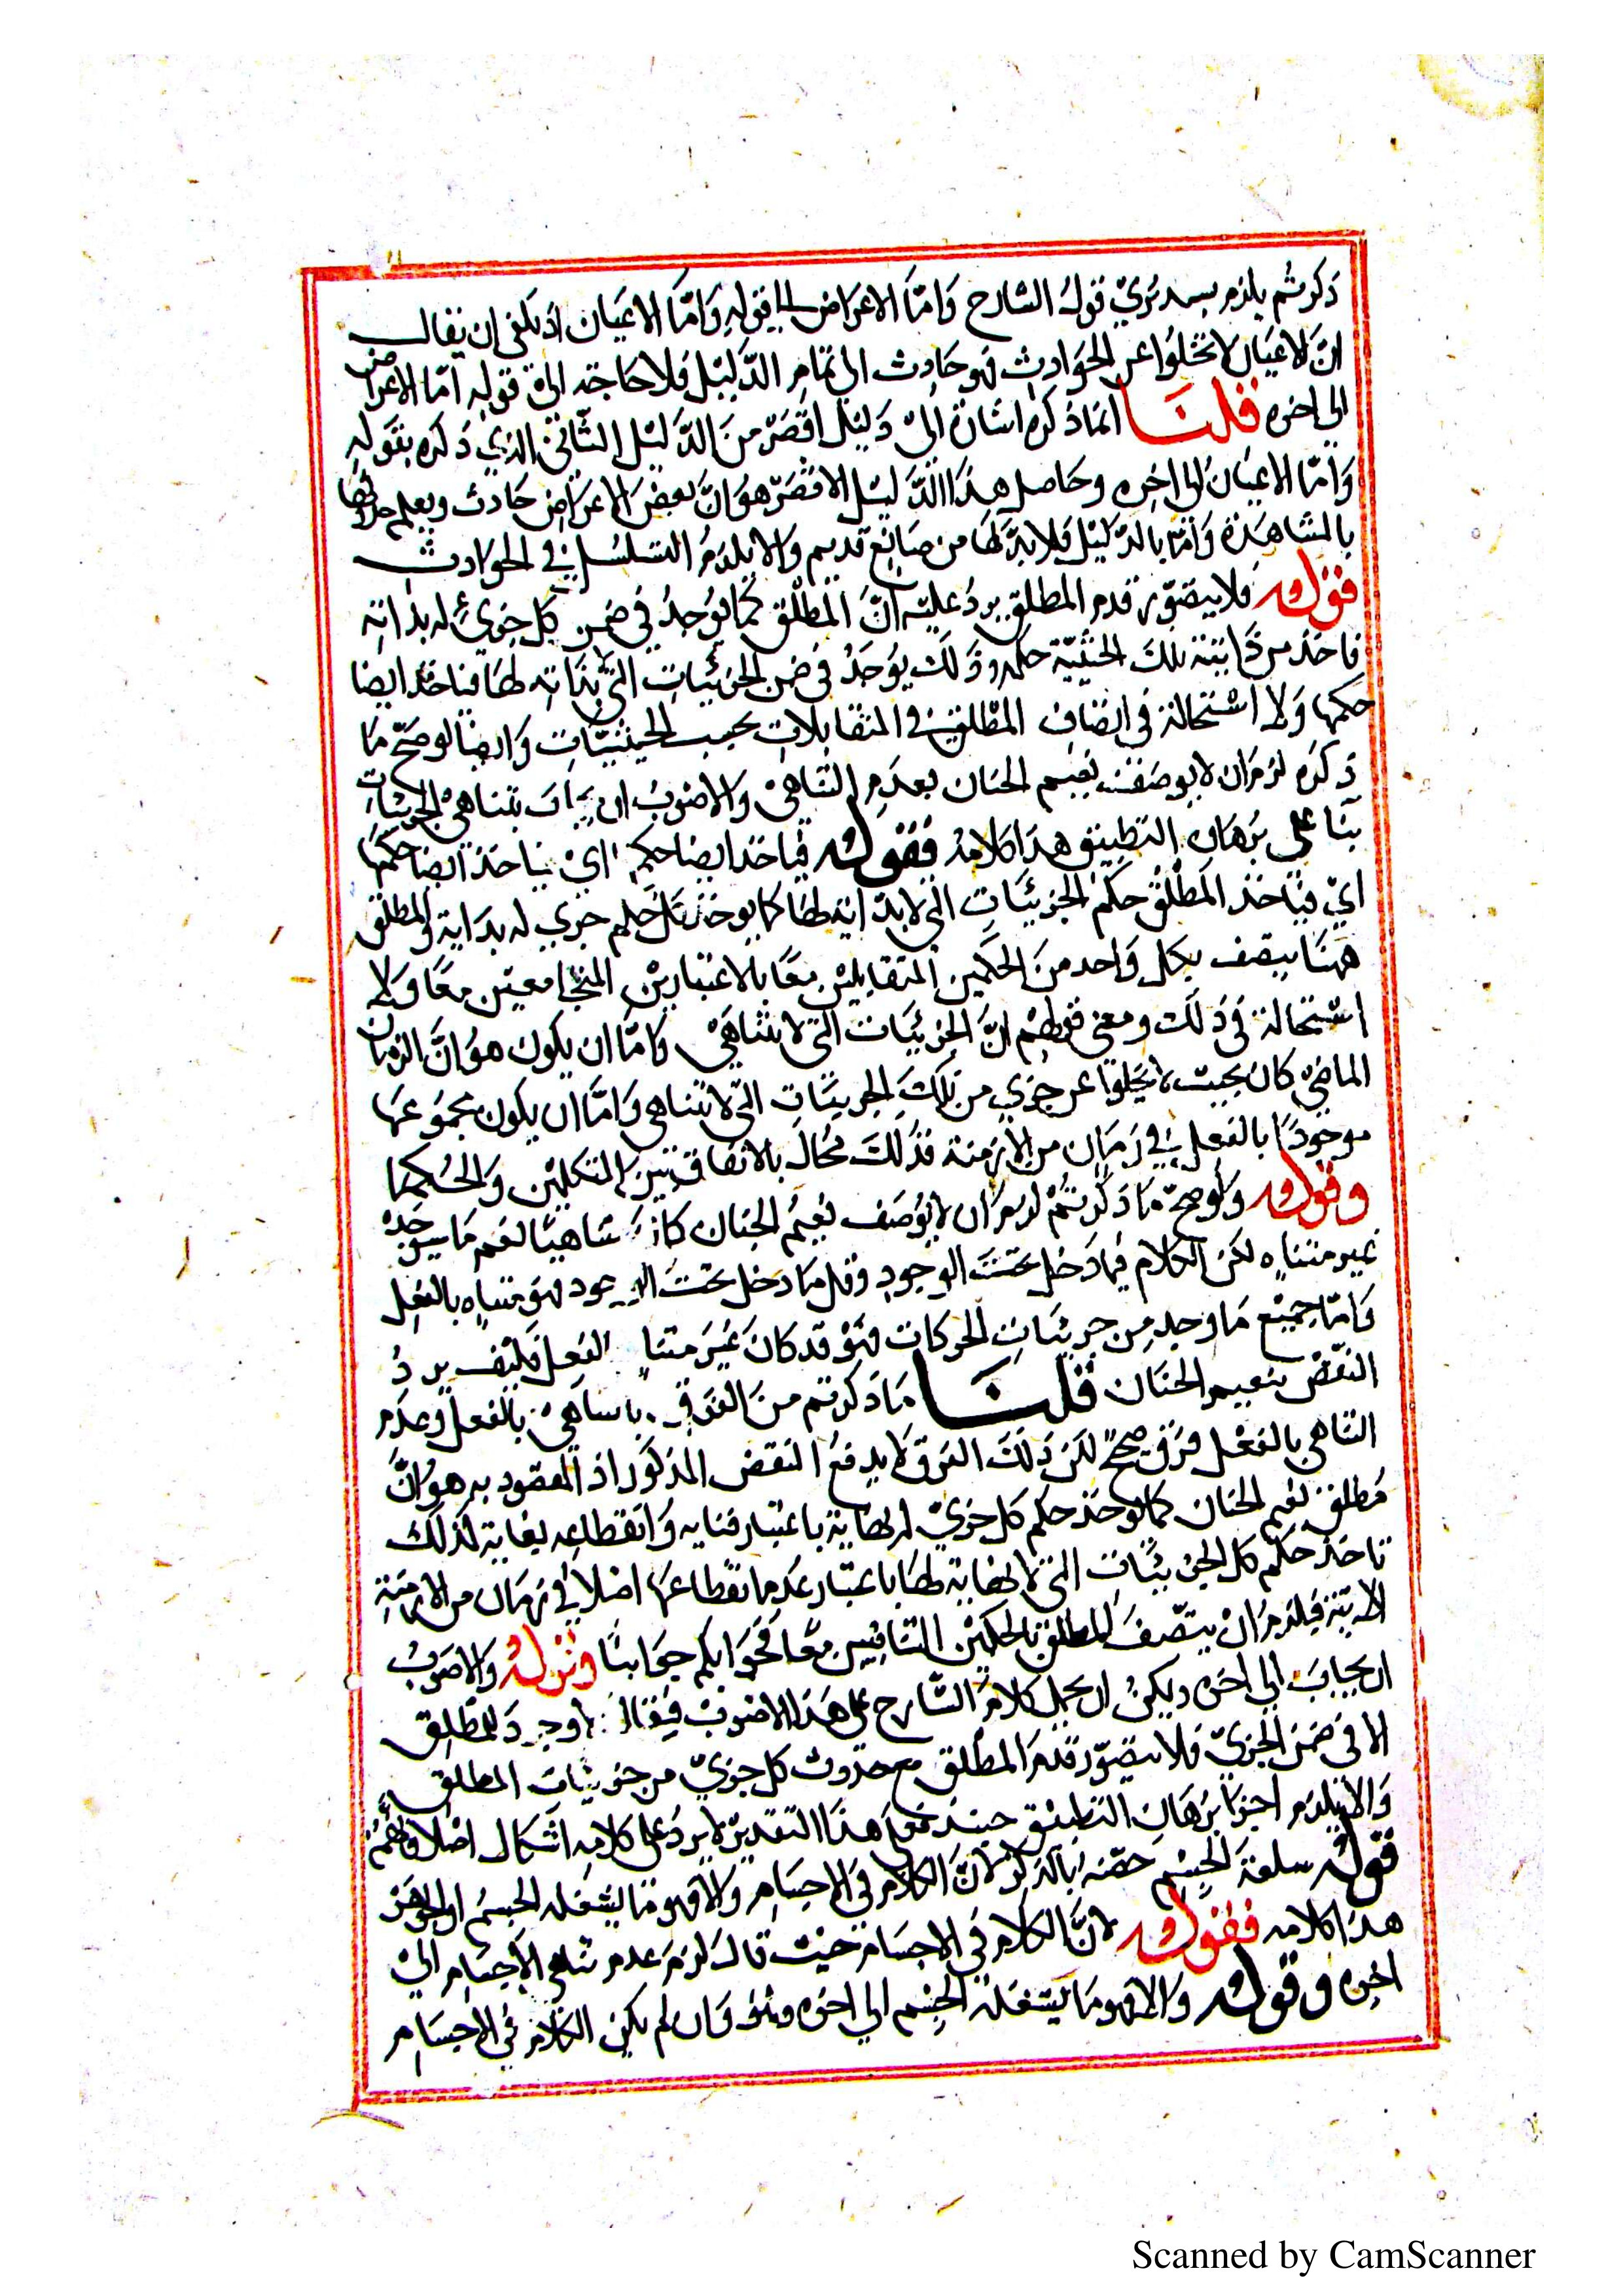 ذكرتم يلزم قول الشارح وَامّا الاعراض الى قولهِ وَامّا الاعيان اذ يكفى ان يقال
انّ الاعيان لا تخلوا عن الحوَادث فهو حَادث الى تمام الدّليْل فلا حَاجة الى قولهِ امّا الاعراض
الى اخره قلنَا انما ذكره اشارة الىْ دَليْل اقصَر منَ الدَّليْل الثَّانى الذي ذكره بقوله
وَامّا الاعيان الى اخره وحَاصل هذَا الدَّليْل الاقصَر هوَ انَّ بعض الاعرَاض حَادث ويعلم حدوثها
بالمشاهَدة وَامّا بالدّليْل فلا بدَّ لهَا من صَانِع قديم والا يلزمُ التسلسُل فى الحوَادث
قوله فلا يتصَوّر قدم المطلق يردُ عليْه انّ المطلق كمَا يوُجدُ فى ضمن كل جزئ له بداية
فاخذ من تلك الحيْثيّة حكمه وذلكَ يوُجَدُ فى ضمن الجزئيات التى لا بدَاية لها فياخذ ايضا
حكمها وَلا اسْتحالة فى اتصاف المطلق فى المتقابلات بحسب الحيثيّات وَايضا لو صَحّ مَا
ذكرَه لزمَ ان لا يوصَف نعيم الجنان بعدَم التناهىْ والاصوبُ ان يجاب بتناهىْ الجزئيات
بنَا على برهَان التطبيق هذَا كلامهُ فقوله فياخذ ايضا حكم ايْ فياخذ ايضا حكمها
ايْ فيَاخذ المطْلقُ حكم الجزئيَّات التى لا بدَاية لهَا كما يوخذ حكم جزى له بدَاية والمطلق
ههنَا يتصف بكل وَاحد منَ الحكمين المتقابليْن معًا بالاعتباريْن معًا وَلا
اسْتحالة فى ذلك ومعنى قولهم انَّ الجزئيَّات التى لا تتناهَىْ وَامّا ان يكون هوُ انَّ الزمان
الماضِىْ كان بحيث لا يخلوا عن جزىٍ من تلكَ الجزئيَّات التى لا تتناهى وَامّا ان يكون مجموعها
موجودًا بالفعل فى زمَان من الازمنة فذلكَ محَال بالاتفاق بَيْن المتكلميْن وَالحُكما
وقوله وَلو صحّ مَا ذكرتُمْ لزم ان لا يوُصَف نعيْمُ الجنان نعم مَا سيُوجَدْ
غير متناهٍ لكن الكلام فيما دَخل تحتَ الوجودِ وكل مَا دخل تحْتَ الوجود فهوَ متناهٍ بالفعل
وَامّا جميْع مَا وجد من جزئيَات الحركات فهوْ قد كانَ غيَر متناهٍ بالفعل فكيْف يردُ
النقضُ بنعيم الجنان قلنَا مَا ذكرتم منَ الفرق بالتناهىْ بالفعل وعدم
التناهى بالفعْل فرْق صحيح لكن ذلكَ الفرق لا يدفعُ النقض المذكور اذ المقصود به هوُ انَّ
مُطلق نعيْم الجنان كما يوخذ حكم كل جزىّ له نهايَة باعتبار فنايه وَانقطاعِه بغاية كذلكَ
تاخذ حكم كل الجزئيَّات التى لا نهَاية لهَا باعتبار عدم انقطاعهَا اصْلا فى زمَان من الازمنة
الاتية فيلزم انْ يتصف المطلق بالحكمْين المتنافيين معًا فجوَابكم جوابنَا وقوله وَالاصوبُ
ان يجابَ الى اخره ويمكنُ ان يحمل كلامُ الشارح على هَذا الاصْوبْ فيقالُ لا وجودَ للمطلق
الا فى ضمْن الجزىّ فلا يتصَوّر قدم المطلق مع حدوث كل جزىّ من جزئيات المطلق
وَالا يلزم اجرَا برهَان التطبيق حينئذ فعلى هذَا التقديرْ لا يردُ على كلامِه اشكال اصْلا
قوله سلعة الجسْم خصّهُ بالذكر لانَّ الكلام فى الاجسَام وَالا فهو مَا يشغله الجسمُ او الجوهر
هذا كلامه فقوله لانَّ الكلام فى الاجسَام حَيْث قالَ لزمَ عدم تناهى الاجْسَام الىْ
اخره وقوله وَالا فهو مَا يشغَله الجسْم الى اخره وَان لم يكن الكلام فى الاجسَام
Scanned by CamScanner